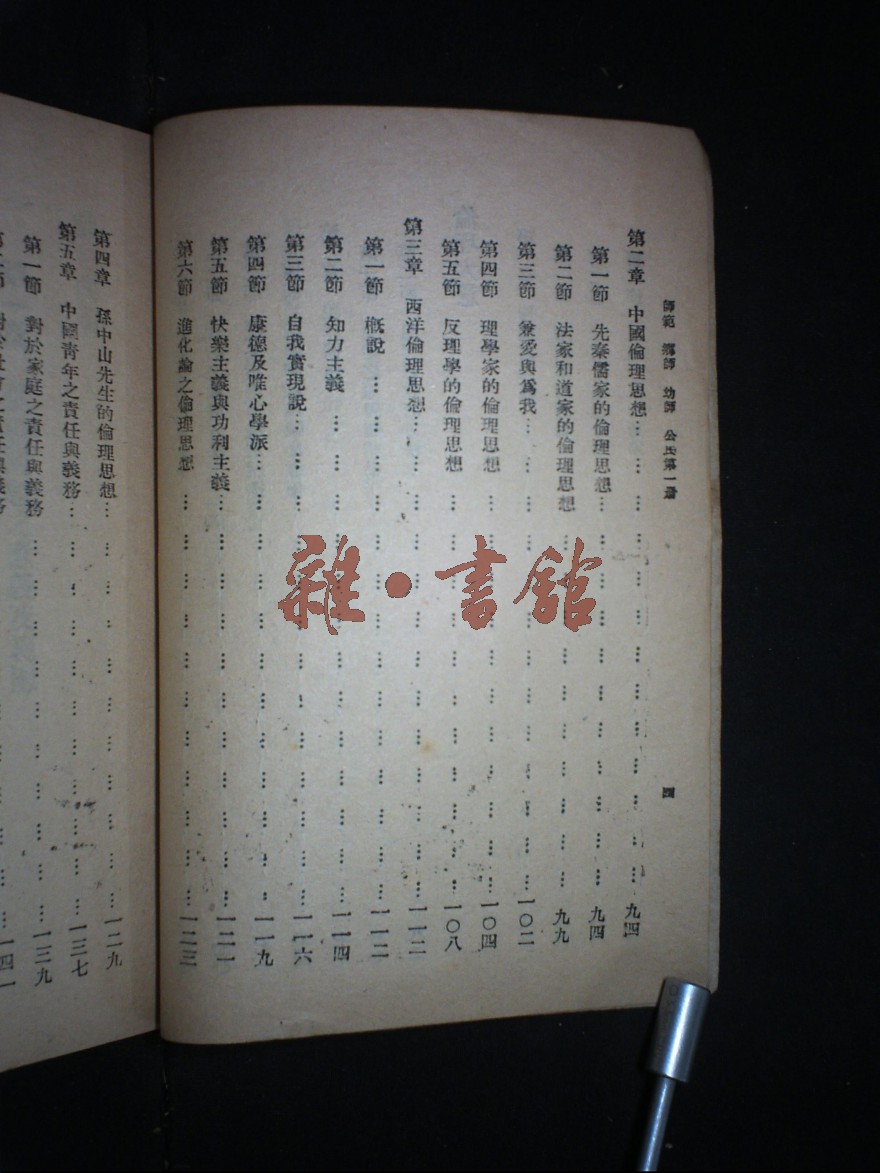 師範 鄉師 幼師 公民第一冊
四
第二章 中國倫理思想……九四
第一節 先秦儒家的倫理思想……九四
第二節 法家和道家的倫理思想……九九
第三節 兼愛與爲我……一〇二
第四節 理學家的倫理思想……一〇四
第五節 反理學的倫理思想……一〇八
第三章 西洋倫理思想……一一二
第一節 概說……一一二
第二節 知力主義……一一四
第三節 自我實現說……一一六
第四節 康德及唯心學派……一一九
第五節 快樂主義與功利主義……一二一
第六節 進化論之倫理思想……一二三
第四章 孫中山先生的倫理思想……一二九
第五章 中國青年之責任與義務……一三七
第一節 對於家庭之責任與義務……一三九
一四一
雜·書館